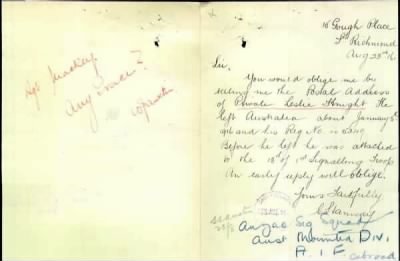 Any trace?
16 Gough Place
Richmond
Aug 23rd 16
Sir,
You would oblige me by
telling me the Postal Address
of Private Leslie Knight He
left Australia about January 5th
1916 and his Reg No. is
Before he left he was attached
to the 13th of 1st Signalling Troop
An early reply will oblige.
Yours Faithfully
Anzac Sig Squad
Aust Mounted Div.
A. I. F.
abroad